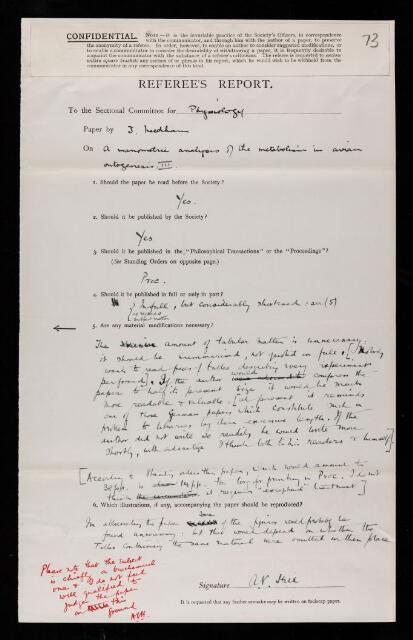 CONFIDENTIAL.
NOTE—It is the invariable practice of the Society's Officers, in correspondence
with the communicator, and through him with the author of a paper, to preserve
the anonymity of a referee. In order, however, to enable an author to consider suggested modifications, or
to enable a communicator to consider the desirability of withdrawing a paper, it is frequently desirable to
acquaint the communicator with the substance of a referee's criticisms. The referee is requested to enclose
within square brackets any section of or phrase in his report, which he would wish to be withheld from the
communicator in any correspondence of this kind.
73
REFEREE'S REPORT.
To the Sectional Committee for Physiology
Paper by J. Needham
On A manometric analysis of the metabolism in avian
ontogenesis. III.
1. Should the paper be read before the Society?
Yes.
2. Should it be published by the Society?
Yes
3. Should it be published in the "Philosophical Transactions" or the "Proceedings"?
(See Standing Orders on opposite page.)
Proc.
4. Should it be published in full or only in part?
In full, but considerably shortened: see (5)
as regards
subject matter
5. Are any material modifications necessary?
The amount of tabular matter is unnecessary:
it should be summarised, not quoted in full. [Nobody
wants to read pages of tables describing every experiment
performed]. If the author would compress the
paper to half its present size it would be much
more readable & valuable. [At present it reminds
one of those German papers which constitute such a
problem to libraries by their excessive length. If the
author did not write so readily he would write more
shortly, with advantage I think both to his readers & himself].
[According to Stanley, other this paper, which would amount to
38pp. is 14pp. too long for printing in Proc. I do not
think it requires "exceptional treatment"]
6. Which illustrations, if any, accompanying the paper should be reproduced?
In abbreviating the paper some of the figures would probably be
found unnecessary: but this would depend on whether the
Tables containing the same material were omitted in their place
Please note that the subject
is chiefly a biochemical
one & I do not feel
well qualified to
judge the paper
on this
ground
AVH.
Signature A.V. Hill
It is requested that any further remarks may be written on foolscap paper.